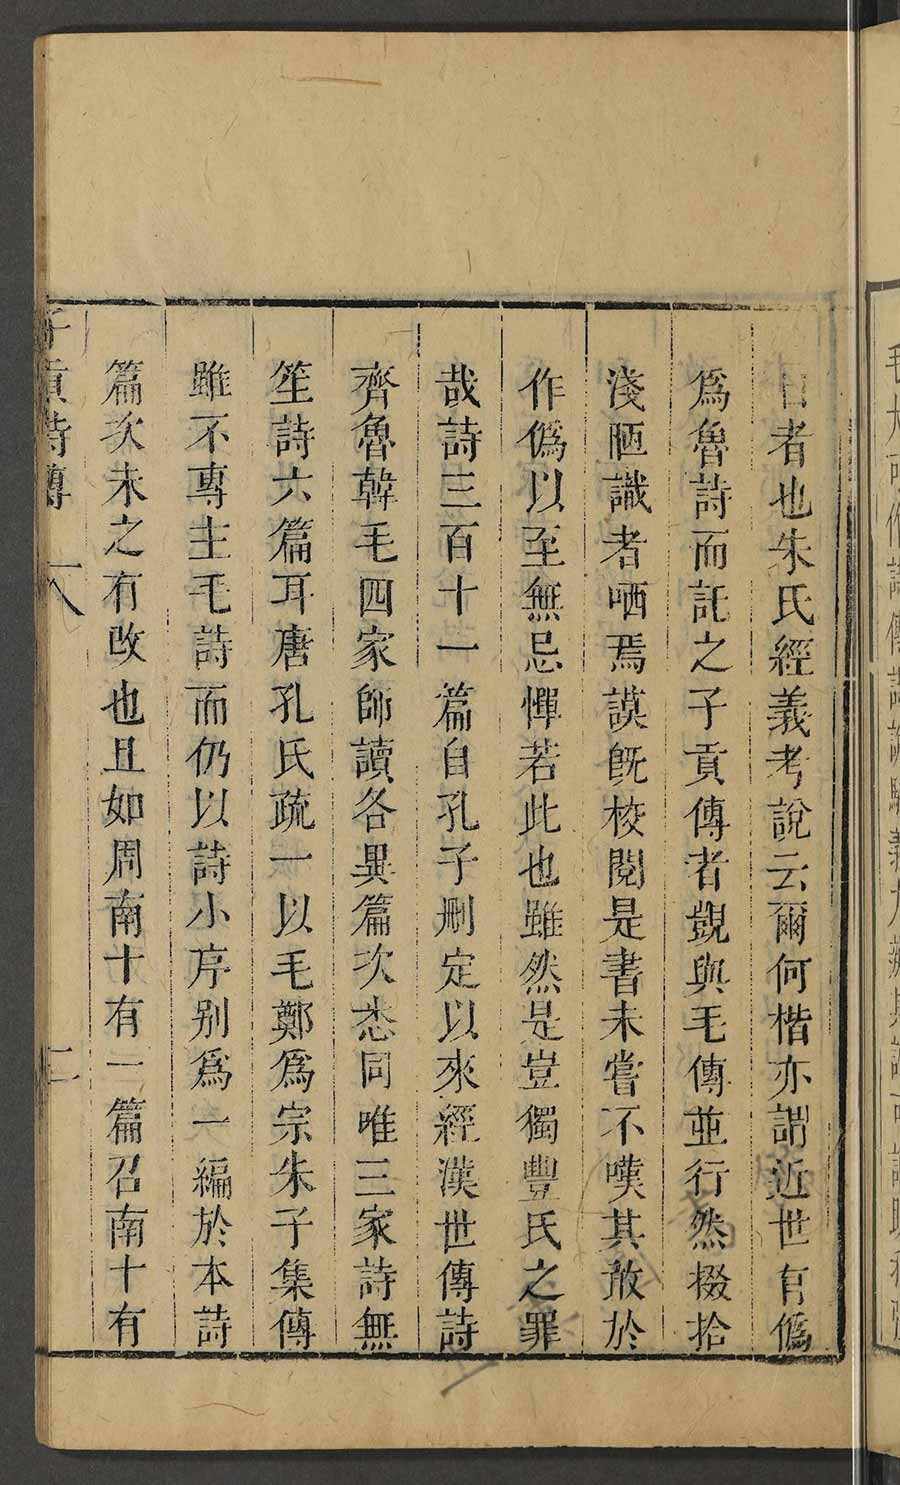 者也朱氏經義考說云爾何楷亦謂近世有僞
爲魯詩而託之子貢傳者覬與毛傳並行然掇拾
淺陋識者哂焉謨旣校閱是書未嘗不嘆其敢於
作僞以至無忌憚若此也雖然是豈獨豐氏之罪
哉詩三百十一篇自孔子刪定以來經漢世傳詩
齊魯韓毛四家師讀各異篇次悉同唯三家詩無
笙詩六篇耳唐孔氏疏一以毛鄭爲宗朱子集傳
雖不專主毛詩而仍以詩小序别爲一編於本詩
篇次未之有改也且如周南十有一篇召南十有
子貢詩傳 二